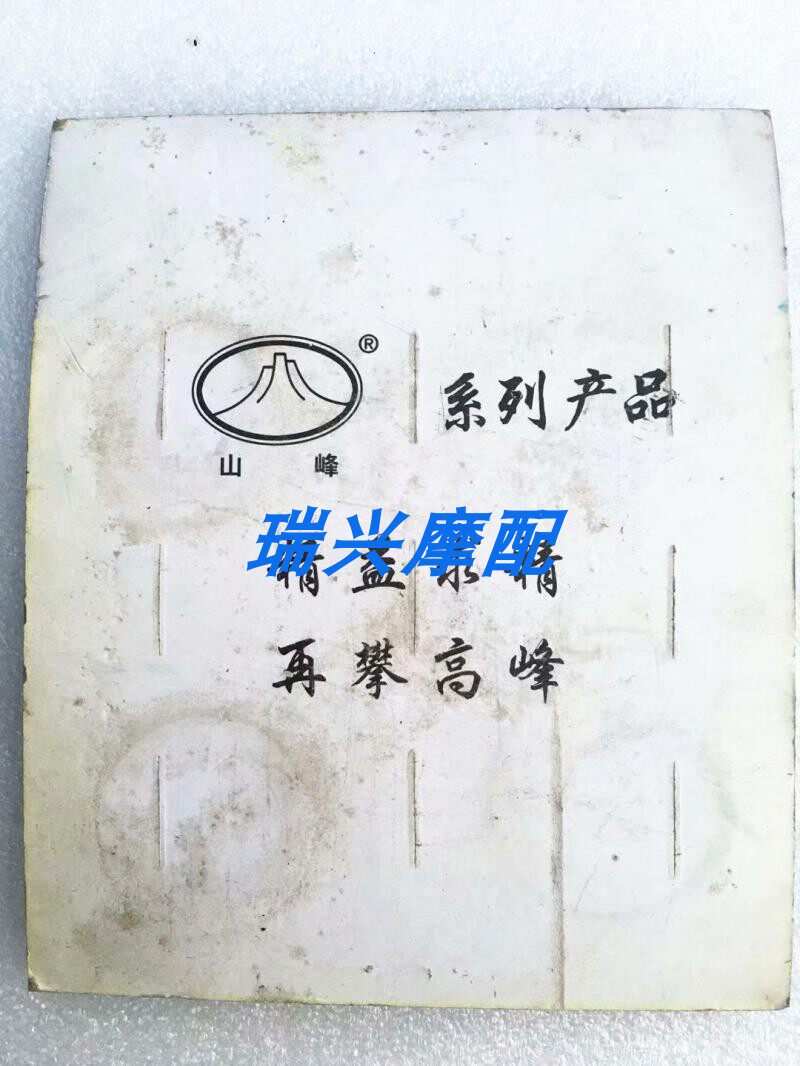 ® 系列产品
山峰
瑞兴摩配
精益求精
再攀高峰